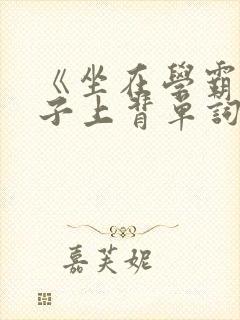 《坐在學霸
子上背單詞
嘉芙妮